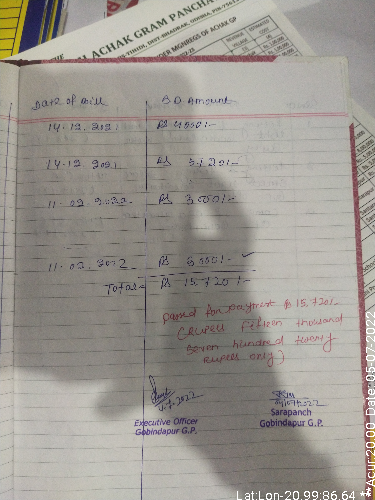 ACHAK GRAM PANCHA
UNDER MGNREGS OF ACHAK GP
Date of Bill S.D Amount
14.12.2021 Rs 4500/-
14.12.2021 Rs 3720/-
11.02.2022 Rs 3000/-
11.02.2022
Total Rs 15,720/-
passed for payment Rs 15,720/-
(Rupees Fifteen thousand
seven hundred twenty
rupees only)
Executive Officer
Gobindapur G.P.
Sarapanch
Gobindapur G.P.
Lat:Lon-20.99:86.64 **Acur:20.00 Date: 05-07-2022